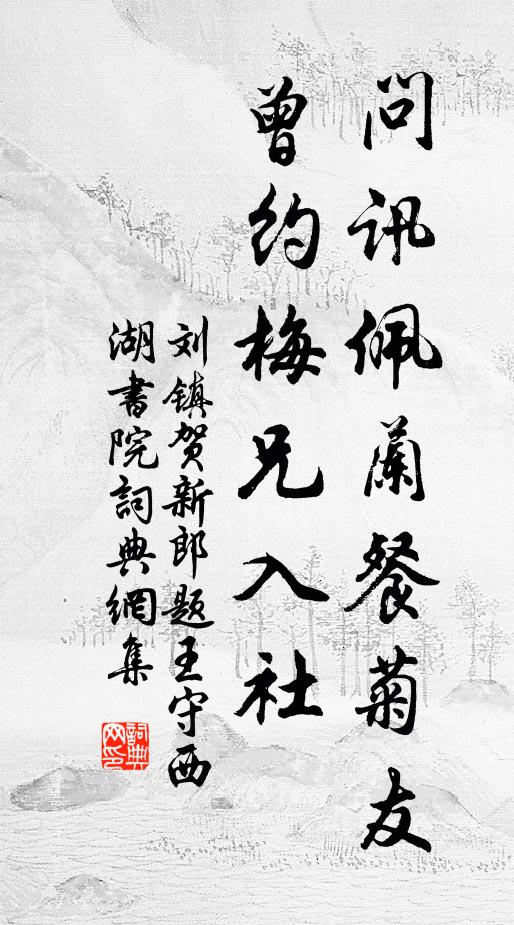 問訊佩蘭餐菊友
曾約梅兄入社
刘镇贺新郎题王守西
湖書院詞典網集
詞典
网印